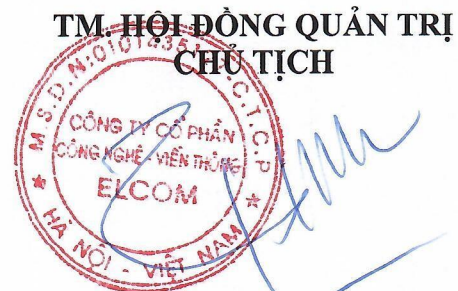 TM. HỘI ĐỒNG QUẢN TRỊ
CHỦ TỊCH
CÔNG TY CỔ PHẦN
CÔNG NGHỆ - VIỄN THÔNG
ELCOM
HÀ NỘI - VIỆT NAM